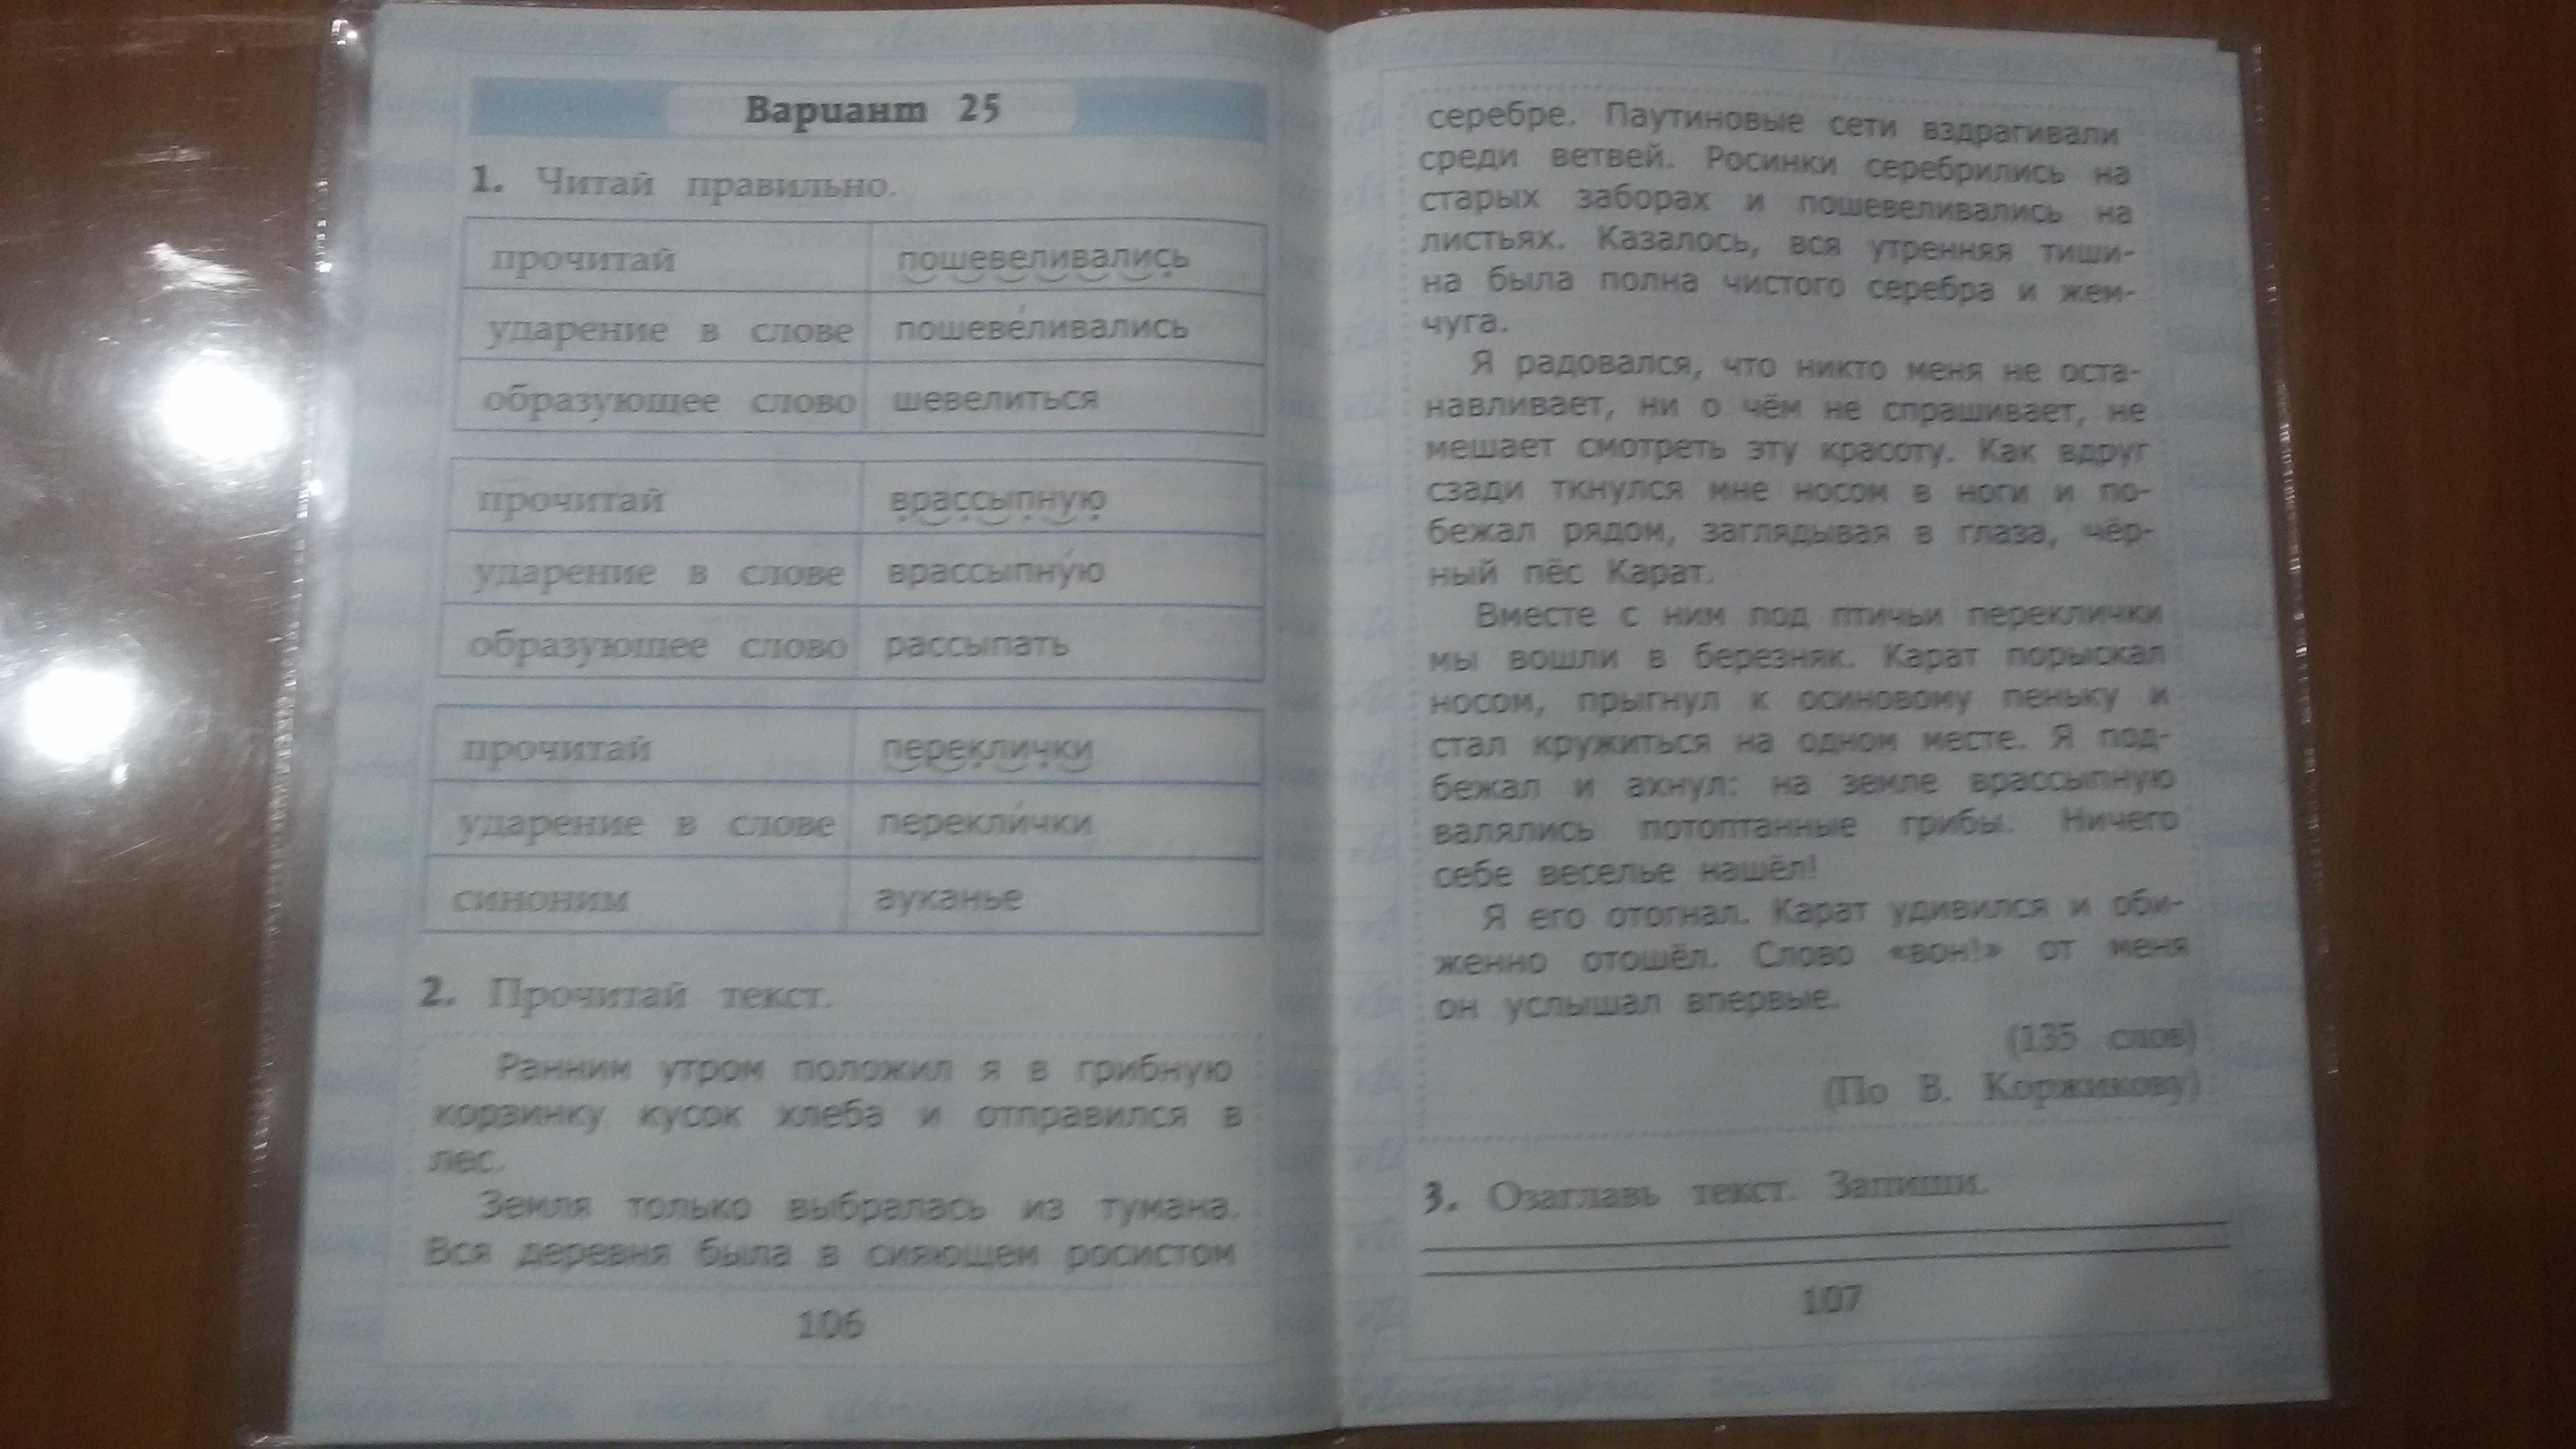 Вариант 25
1. Читай правильно.
прочитай пошевеливались
ударение в слове пошеве́ливались
образующее слово шевелиться
прочитай врассыпную
ударение в слове врассыпну́ю
образующее слово рассыпать
прочитай переклички
ударение в слове перекли́чки
синоним ауканье
2. Прочитай текст.
Ранним утром положил я в грибную
корзинку кусок хлеба и отправился в
лес.
Земля только выбралась из тумана.
Вся деревня была в сияющем росистом
106
серебре. Паутиновые сети вздрагивали
среди ветвей. Росинки серебрились на
старых заборах и пошевеливались на
листьях. Казалось, вся утренняя тиши-
на была полна чистого серебра и жем-
чуга.
Я радовался, что никто меня не оста-
навливает, ни о чём не спрашивает, не
мешает смотреть эту красоту. Как вдруг
сзади ткнулся мне носом в ноги и по-
бежал рядом, заглядывая в глаза, чёр-
ный пёс Карат.
Вместе с ним под птичьи переклички
мы вошли в березняк. Карат порыскал
носом, прыгнул к осиновому пеньку и
стал кружиться на одном месте. Я под-
бежал и ахнул: на земле врассыпную
валялись потоптанные грибы. Ничего
себе веселье нашёл!
Я его отогнал. Карат удивился и оби-
женно отошёл. Слово «вон!» от меня
он услышал впервые.
(135 слов)
(По В. Коржикову)
3. Озаглавь текст. Запиши.
107